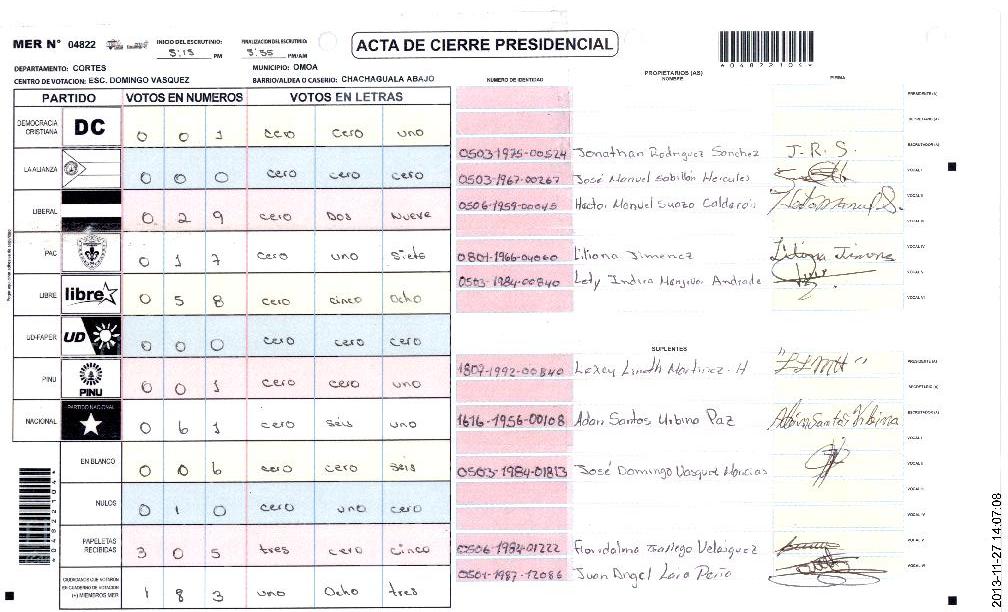 MER N° 04822
INICIO DEL ESCRUTINIO: 5:15 PM
FINALIZACION DEL ESCRUTINIO: 5:55 PM/AM
ACTA DE CIERRE PRESIDENCIAL
DEPARTAMENTO: CORTES
MUNICIPIO: OMOA
CENTRO DE VOTACION: ESC. DOMINGO VASQUEZ
BARRIO/ALDEA O CASERIO: CHACHAGUALA ABAJO
PARTIDO VOTOS EN NUMEROS VOTOS EN LETRAS
DEMOCRACIA CRISTIANA DC 0 0 1 cero cero uno
LA ALIANZA 0 0 0 cero cero cero
LIBERAL 0 2 9 cero Dos Nueve
PAC 0 1 7 cero uno Siete
LIBRE libre 0 5 8 cero cinco Ocho
UD-FAPER UD 0 0 0 cero cero cero
PINU PINU 0 0 1 cero cero uno
NACIONAL PARTIDO NACIONAL 0 6 1 cero seis uno
EN BLANCO 0 0 6 cero cero seis
NULOS 0 1 0 cero uno cero
PAPELETAS RECIBIDAS 3 0 5 tres cero cinco
CIUDADANOS QUE VOTARON EN CUADERNO DE VOTACION (+) MIEMBROS MER 1 8 3 uno Ocho tres
NUMERO DE IDENTIDAD
PROPIETARIOS (AS)
NOMBRE
FIRMA
PRESIDENTE (A)
SECRETARIO (A)
0503-1975-00524 Jonathan Rodriguez Sanchez J.R.S. ESCRUTADOR (A)
0503-1967-00267 José Manuel Sabillón Hercules VOCAL I
0506-1959-00045 Hector Manuel Suazo Calderón VOCAL II
VOCAL III
0801-1966-04060 Liliana Jimenez VOCAL IV
0503-1984-00840 Lety Indira Andrade VOCAL V
VOCAL VI
SUPLENTES
1807-1992-00840 Martinez H PRESIDENTE (A)
SECRETARIO (A)
1616-1956-00108 Adan Santos Urbina Paz ESCRUTADOR (A)
VOCAL I
0503-1984-01813 José Domingo Vasquez VOCAL II
VOCAL III
VOCAL IV
0506-1984-01222 Velasquez VOCAL V
0501-1987-12086 Juan Angel Lara Peña VOCAL VI
2013-11-27 14:07:08